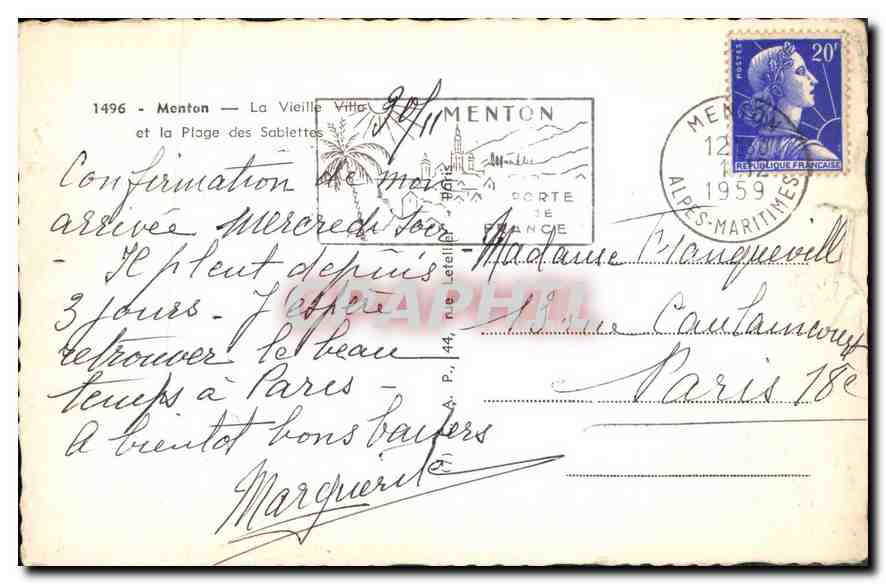 1496 - Menton — La Vieille Ville
et la Plage des Sablettes
30/11
Confirmation de mon
arrivée mercredi soir
- Il pleut depuis
3 jours - J'espère
retrouver le beau
temps à Paris -
A bientôt bons baisers
Marguerite
MENTON
PORTE
DE
FRANCE
A. P., 44, rue Letellier - Paris
CPAPHIL
POSTES
20F
REPUBLIQUE FRANÇAISE
MENTON
12
1959
ALPES-MARITIMES
Madame Blanqueville
13 rue Caulaincourt
Paris 18e